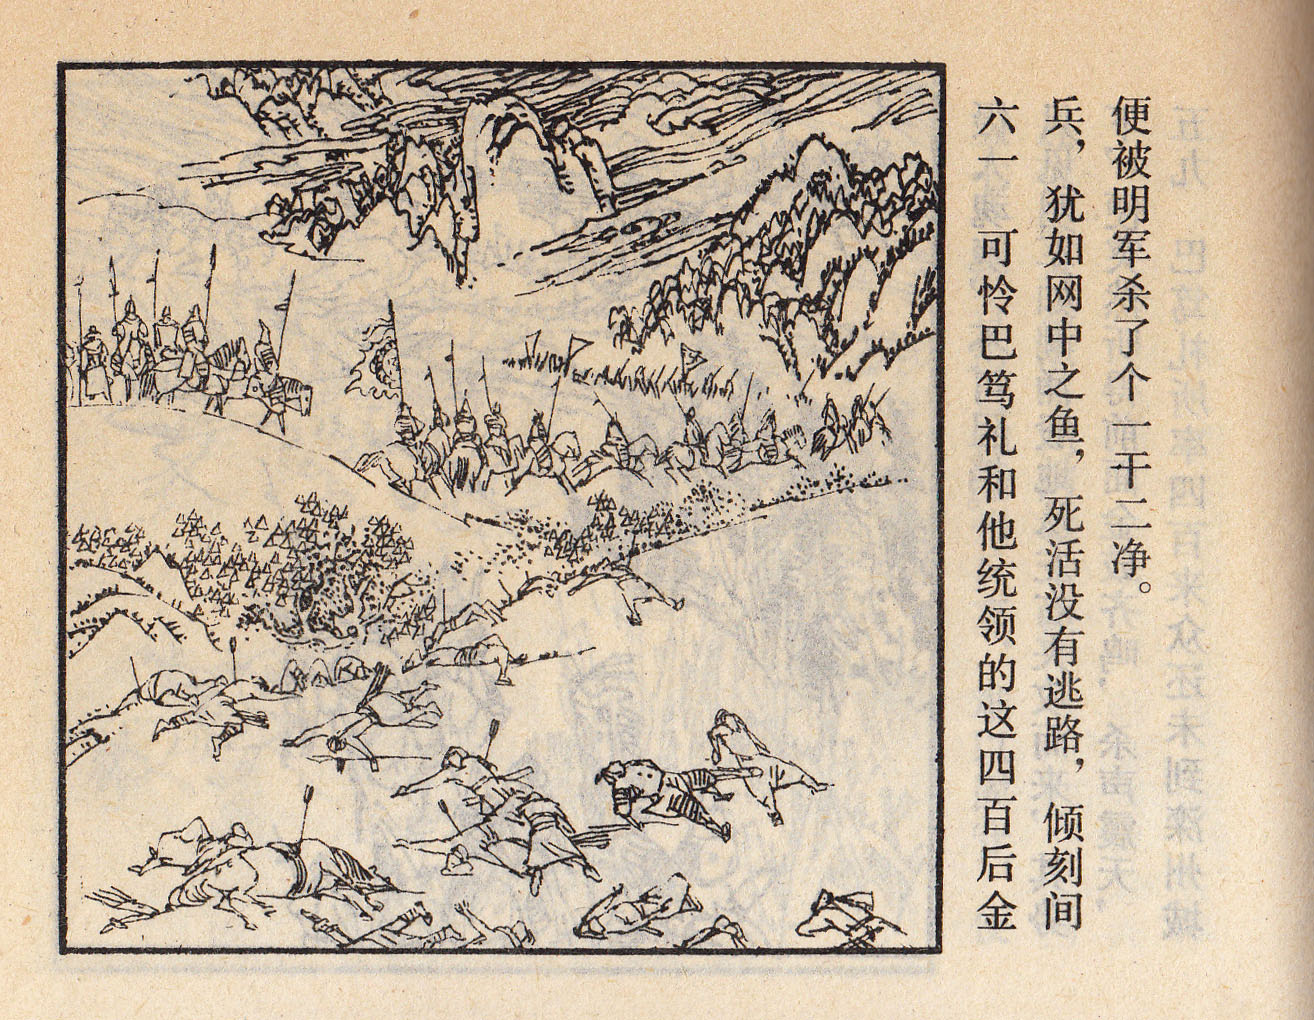 六一 可怜巴笃礼和他统领的这四百后金
兵，犹如网中之鱼，死活没有逃路，倾刻间
便被明军杀了个一干二净。